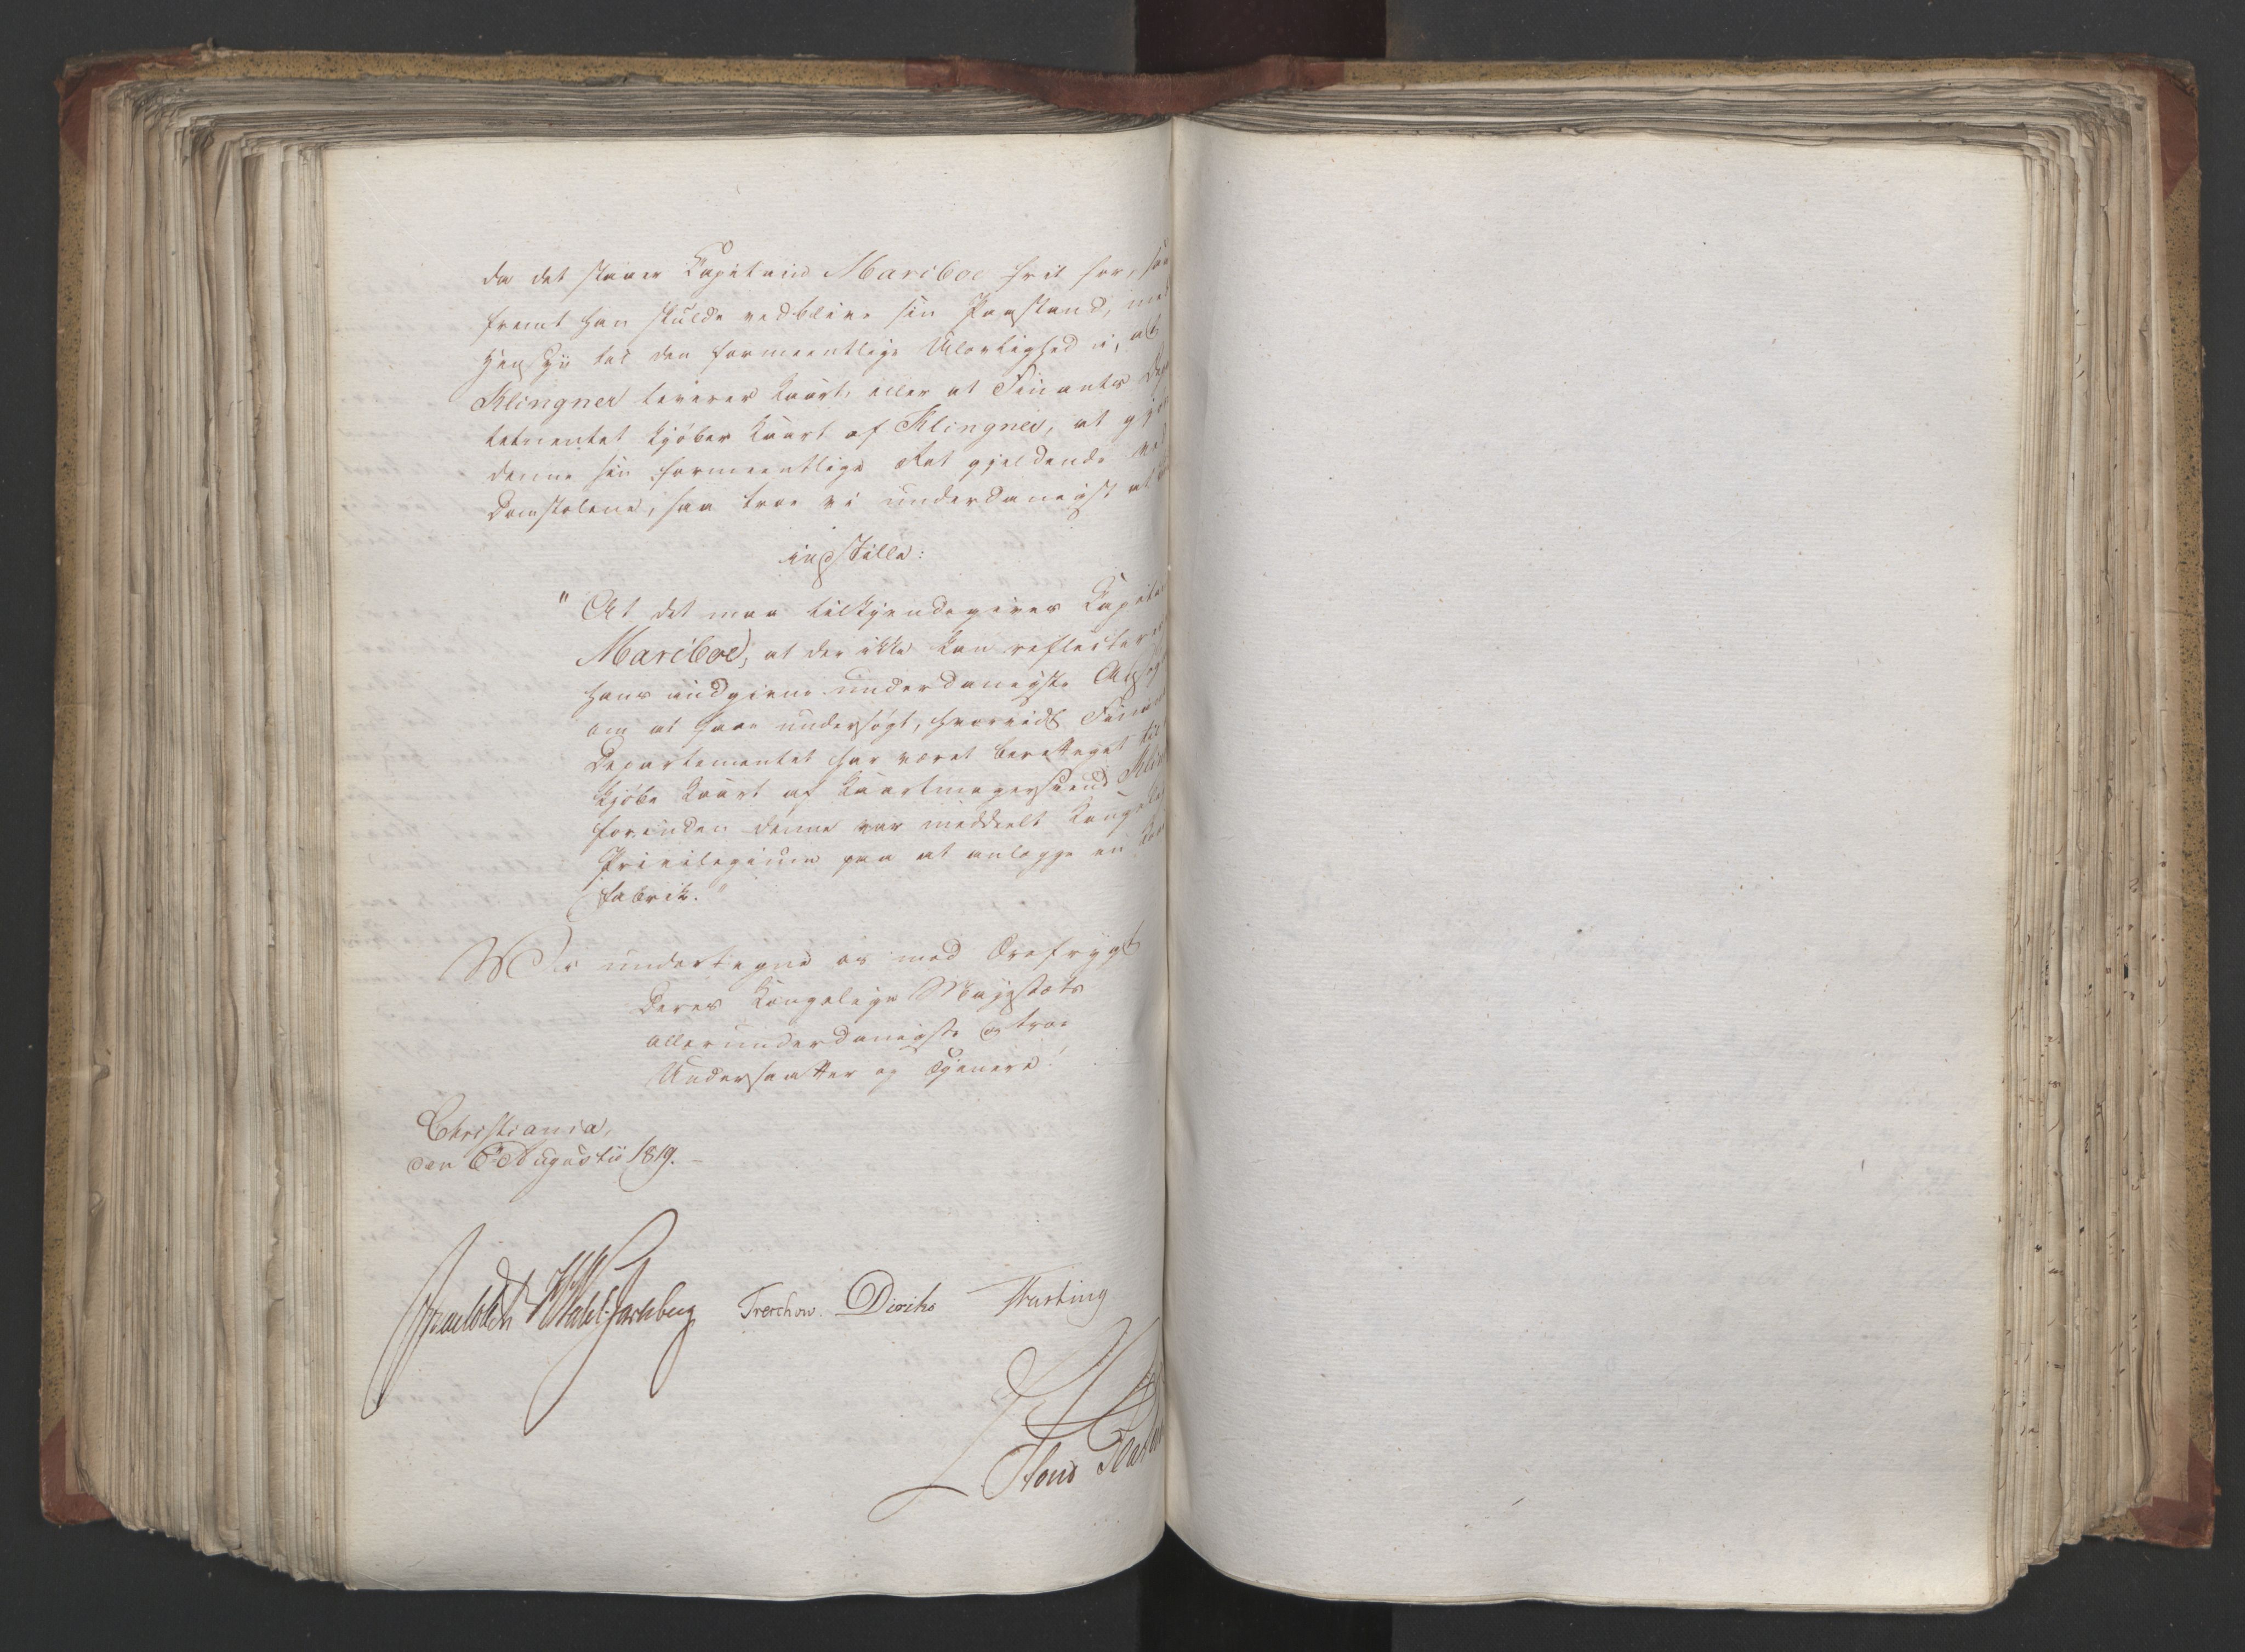 da det staaer Capitain Mariboe frit for, saa
fremt han skulde vedblive sin Paastand, med
Hensyn til den formeentlige Ulovlighed i, at
Klingner leverer Kaart, eller at Finants Depar
tementet kjøber Kaart af Klingner, at gjøre
denne sin formeentlige Ret gjeldende ved
Domstolene, saa troe vi underdanigst at
indstille:
"At det maa tilkjendegives Capitain
Mariboe, at der ikke kan reflecteres
hans indgivne underdanigste Ansøgning
om at faae undersøgt, hvorvidt Finants
Departementet har været berettiget til
kjøbe Kaart af Kaartmagersvend Klin
forinden denne var meddeelt Kongeligt
Privilegium paa at anlægge en Kaart
fabrik."
Vi undertegne os med Ærefrygt
Deres Kongelige Majestæts
allerunderdanigste og troe
Undersaatter og Tjenere!
Christiania,
den 6 Augustii 1819.
Wedel-Jarlsberg Treschow. Diriks Fasting
Hans